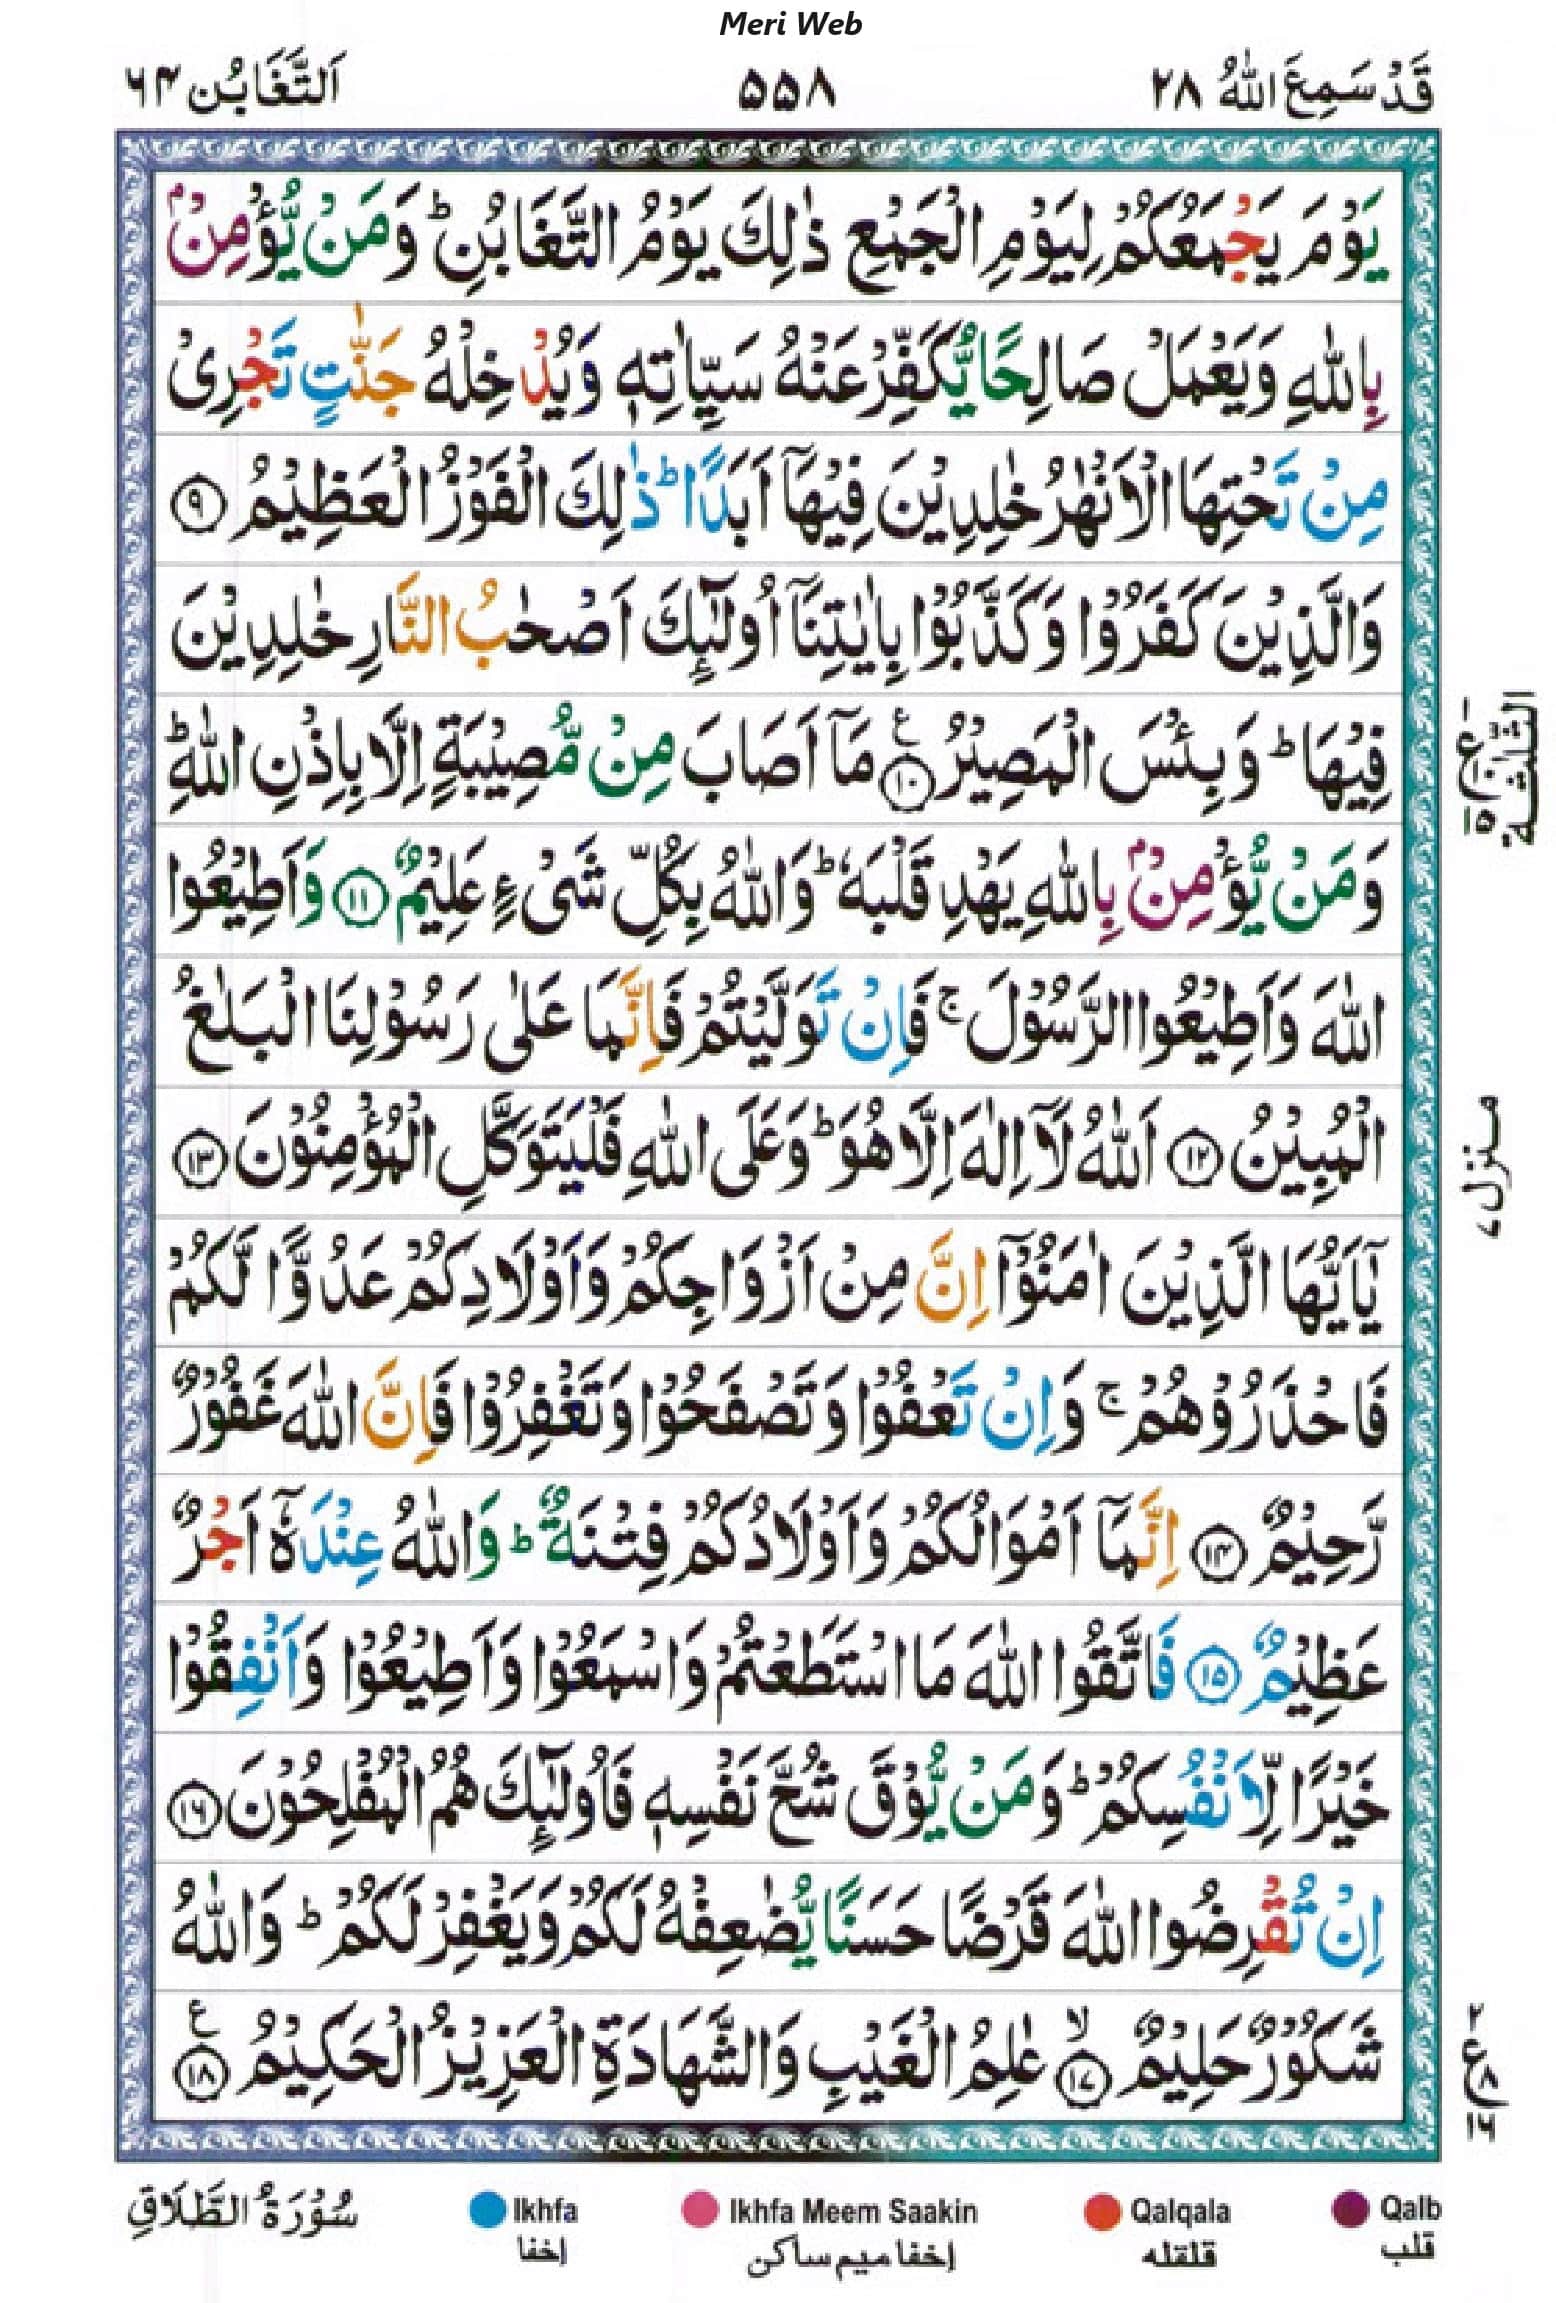 Meri Web
قَدْ سَمِعَ اللّٰهُ ٢٨
٥٥٨
اَلتَّغَابُن ٦٤
يَوْمَ يَجْمَعُكُمْ لِيَوْمِ الْجَمْعِ ذٰلِكَ يَوْمُ التَّغَابُنِ ؕ وَمَنْ يُّؤْمِنْۢ
بِاللّٰهِ وَيَعْمَلْ صَالِحًا يُّكَفِّرْ عَنْهُ سَيِّاٰتِهٖ وَيُدْخِلْهُ جَنّٰتٍ تَجْرِىْ
مِنْ تَحْتِهَا الْاَنْهٰرُ خٰلِدِيْنَ فِيْهَاۤ اَبَدًا ؕ ذٰلِكَ الْفَوْزُ الْعَظِيْمُ ۝٩
وَالَّذِيْنَ كَفَرُوْا وَكَذَّبُوْا بِاٰيٰتِنَاۤ اُولٰٓئِكَ اَصْحٰبُ النَّارِ خٰلِدِيْنَ
فِيْهَا ؕ وَبِئْسَ الْمَصِيْرُ ۝١٠ ع مَاۤ اَصَابَ مِنْ مُّصِيْبَةٍ اِلَّا بِاِذْنِ اللّٰهِ ؕ
وَمَنْ يُّؤْمِنْۢ بِاللّٰهِ يَهْدِ قَلْبَهٗ ؕ وَاللّٰهُ بِكُلِّ شَىْءٍ عَلِيْمٌ ۝١١ وَاَطِيْعُوا
اللّٰهَ وَاَطِيْعُوا الرَّسُوْلَ ۚ فَاِنْ تَوَلَّيْتُمْ فَاِنَّمَا عَلٰى رَسُوْلِنَا الْبَلٰغُ
الْمُبِيْنُ ۝١٢ اَللّٰهُ لَاۤ اِلٰهَ اِلَّا هُوَ ؕ وَعَلَى اللّٰهِ فَلْيَتَوَكَّلِ الْمُؤْمِنُوْنَ ۝١٣
يٰۤاَيُّهَا الَّذِيْنَ اٰمَنُوْۤا اِنَّ مِنْ اَزْوَاجِكُمْ وَاَوْلَادِكُمْ عَدُوًّا لَّكُمْ
فَاحْذَرُوْهُمْ ۚ وَاِنْ تَعْفُوْا وَتَصْفَحُوْا وَتَغْفِرُوْا فَاِنَّ اللّٰهَ غَفُوْرٌ
رَّحِيْمٌ ۝١٤ اِنَّمَاۤ اَمْوَالُكُمْ وَاَوْلَادُكُمْ فِتْنَةٌ ؕ وَاللّٰهُ عِنْدَهٗۤ اَجْرٌ
عَظِيْمٌ ۝١٥ فَاتَّقُوا اللّٰهَ مَا اسْتَطَعْتُمْ وَاسْمَعُوْا وَاَطِيْعُوْا وَاَنْفِقُوْا
خَيْرًا لِّاَنْفُسِكُمْ ؕ وَمَنْ يُّوْقَ شُحَّ نَفْسِهٖ فَاُولٰٓئِكَ هُمُ الْمُفْلِحُوْنَ ۝١٦
اِنْ تُقْرِضُوا اللّٰهَ قَرْضًا حَسَنًا يُّضٰعِفْهُ لَكُمْ وَيَغْفِرْ لَكُمْ ؕ وَاللّٰهُ
شَكُوْرٌ حَلِيْمٌ ۝١٧ ۙ عٰلِمُ الْغَيْبِ وَالشَّهَادَةِ الْعَزِيْزُ الْحَكِيْمُ ۝١٨ ع
الثلثة
ع ١٠
منزل ٧
٢ ع ٨ ١٦
سُوْرَةُ الطَّلَاقِ
Ikhfa
إخفا
Ikhfa Meem Saakin
إخفا ميم ساكن
Qalqala
قلقله
Qalb
قلب